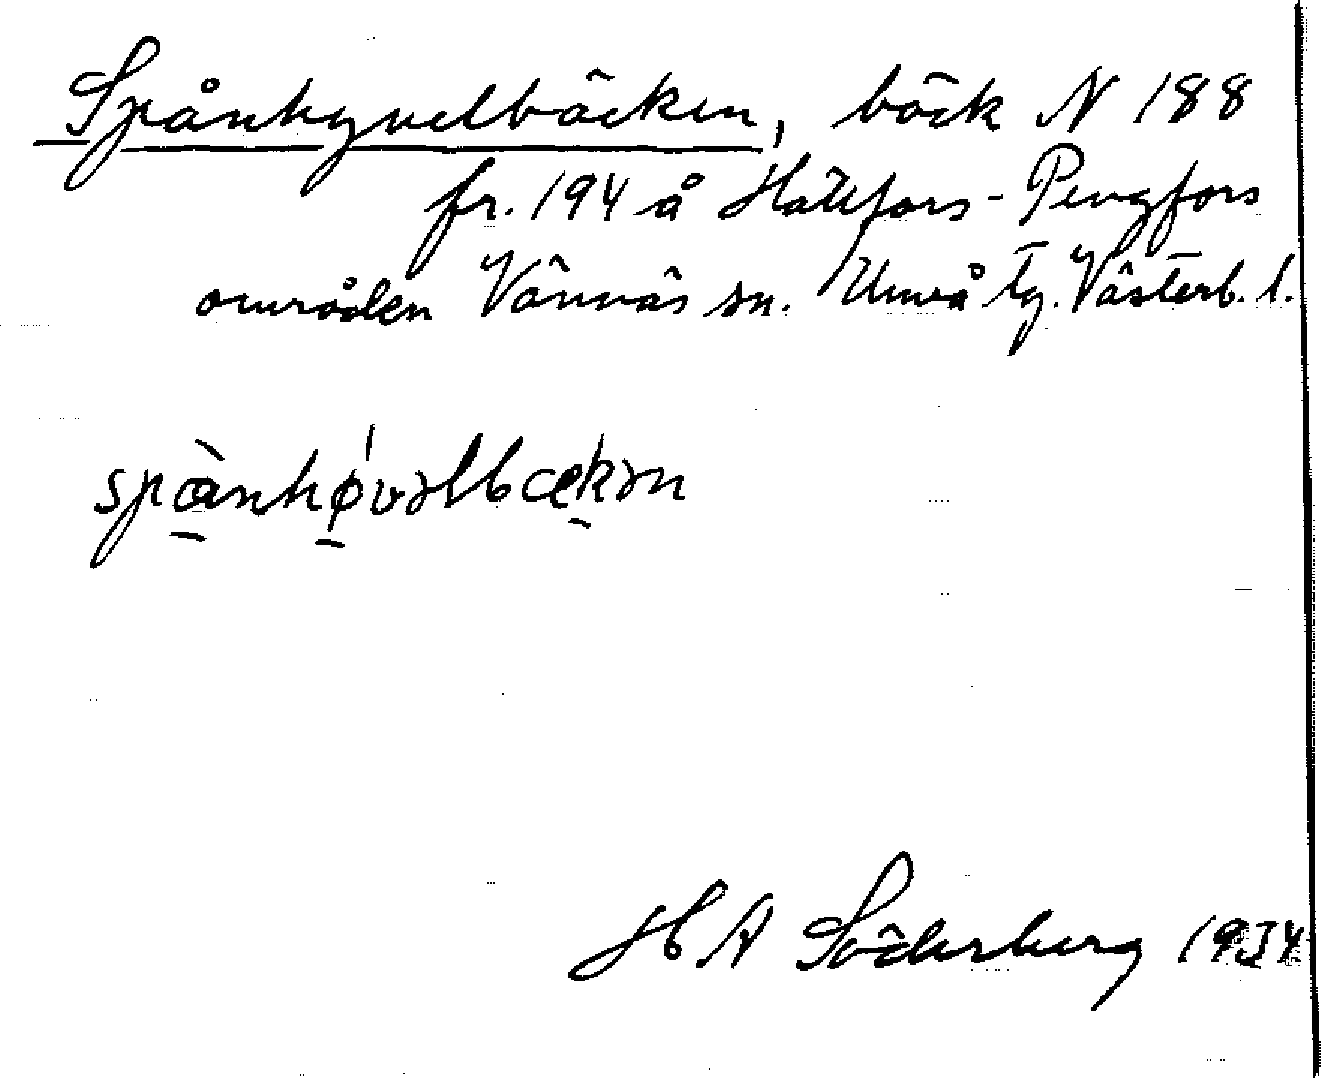 Spånhyvelbäcken, bäck N 188
fr. 194 å Hällfors - Pengfors
områden Vännäs sn. Umeå tg. Västerb. l.
spånhǿvəlbækən
H A Söderberg 1934